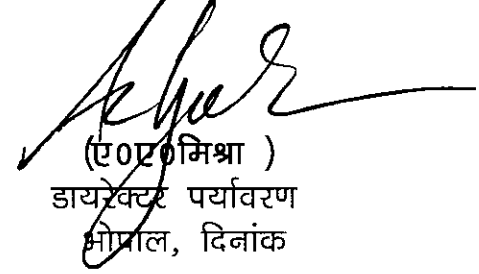 (ए0ए0मिश्रा )
डायरेक्टर पर्यावरण
भोपाल, दिनांक